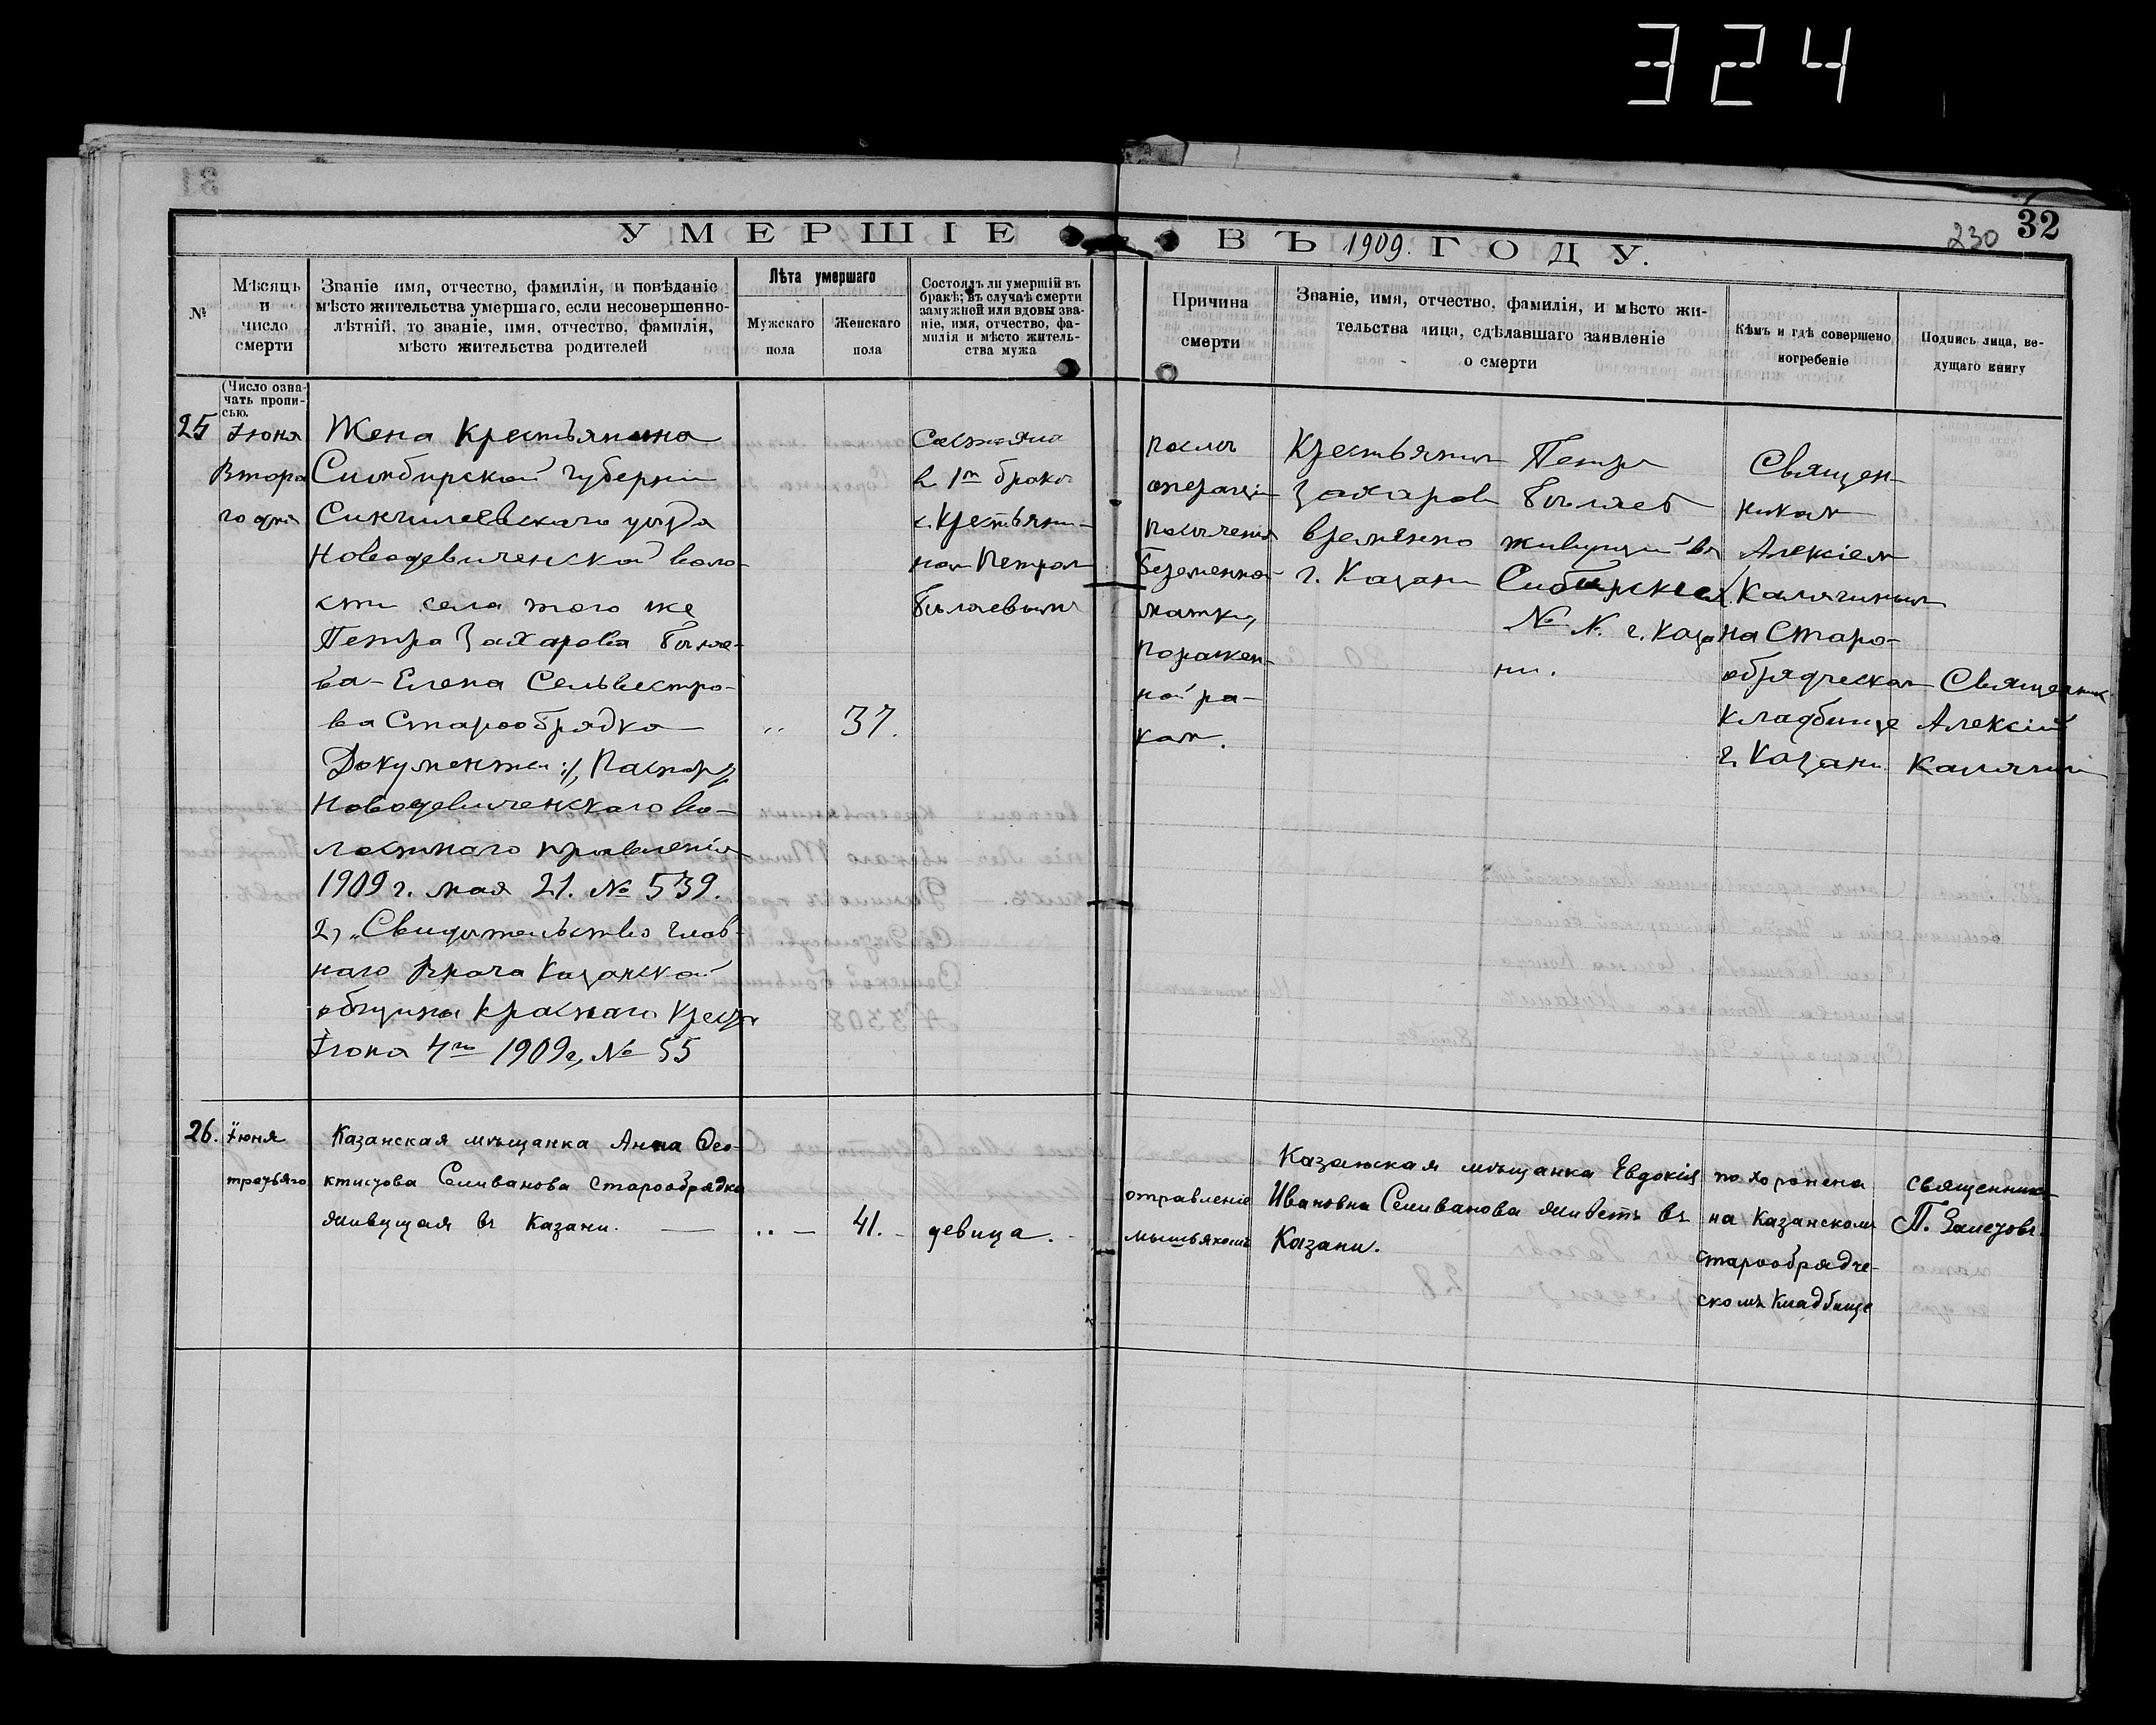 324
32
230
УМЕРШІЕ ВЪ 1909. ГОДУ.
№
Мѣсяцъ
и
число
смерти
Званіе имя, отчество, фамилія, и повѣданіе
мѣсто жительства умершаго, если несовершенно-
лѣтній, то званіе, имя, отчество, фамилія,
мѣсто жительства родителей
Лѣта умершаго
Мужскаго
пола
Женскаго
пола
Состоялъ ли умершій въ
бракѣ; въ случаѣ смерти
замужней или вдовы зва-
ніе, имя, отчество, фа-
милія и мѣсто житель-
ства мужа
Причина
смерти
Званіе, имя, отчество, фамилія, и мѣсто жи-
тельства лица, сдѣлавшаго заявленіе
о смерти
Кѣмъ и гдѣ совершено
погребеніе
Подпись лица, ве-
дущаго книгу
(Число озна-
чать пропи-
сью.
25
Іюня
Второ
го дня
Жена Крестьянина
Симбирской губерніи
Сингилеевскаго уѣзда
Новодевиченской воло-
сти села того же
Петра Захарова Бѣляе-
ва - Елена Сельвестро-
ва Старообрядка
Документы: 1, Паспорт
Новодевиченскаго во-
лостнаго правленія
1909 г. мая 21. № 539.
2, Свидѣтельство глав-
наго врача Казанской
общины Краснаго Креста
Іюня 4го 1909 г, № 55
"
37.
Состояла
в 1м браке
с Крестьяни-
ном Петром
Бѣляевымъ
После
операціи
Беременной
матки,
поражен-
ной ра-
ком.
Крестьянин Петр
Захаров Бѣляев
временно живущий въ
г. Казани
№ N. г. Каза
ни.
Священ-
ником
Алексіем
Калягиным
на Старо-
обрядческом
кладбище
г. Казани
Священник
Алексій
Калягин
26.
Іюня
третьяго
Казанская мѣщанка Анна Фео-
ктистова Селиванова старообрядка
живущая въ Казани. —
.. —
41. -
девица. -
отравленіе
мышьякомъ
Казанская мѣщанка Евдокія
Ивановна Селиванова живетъ въ
Казани.
похоронена
на Казанскомъ
старообрядче-
скомъ кладбище
священникъ
П. Залетовъ.